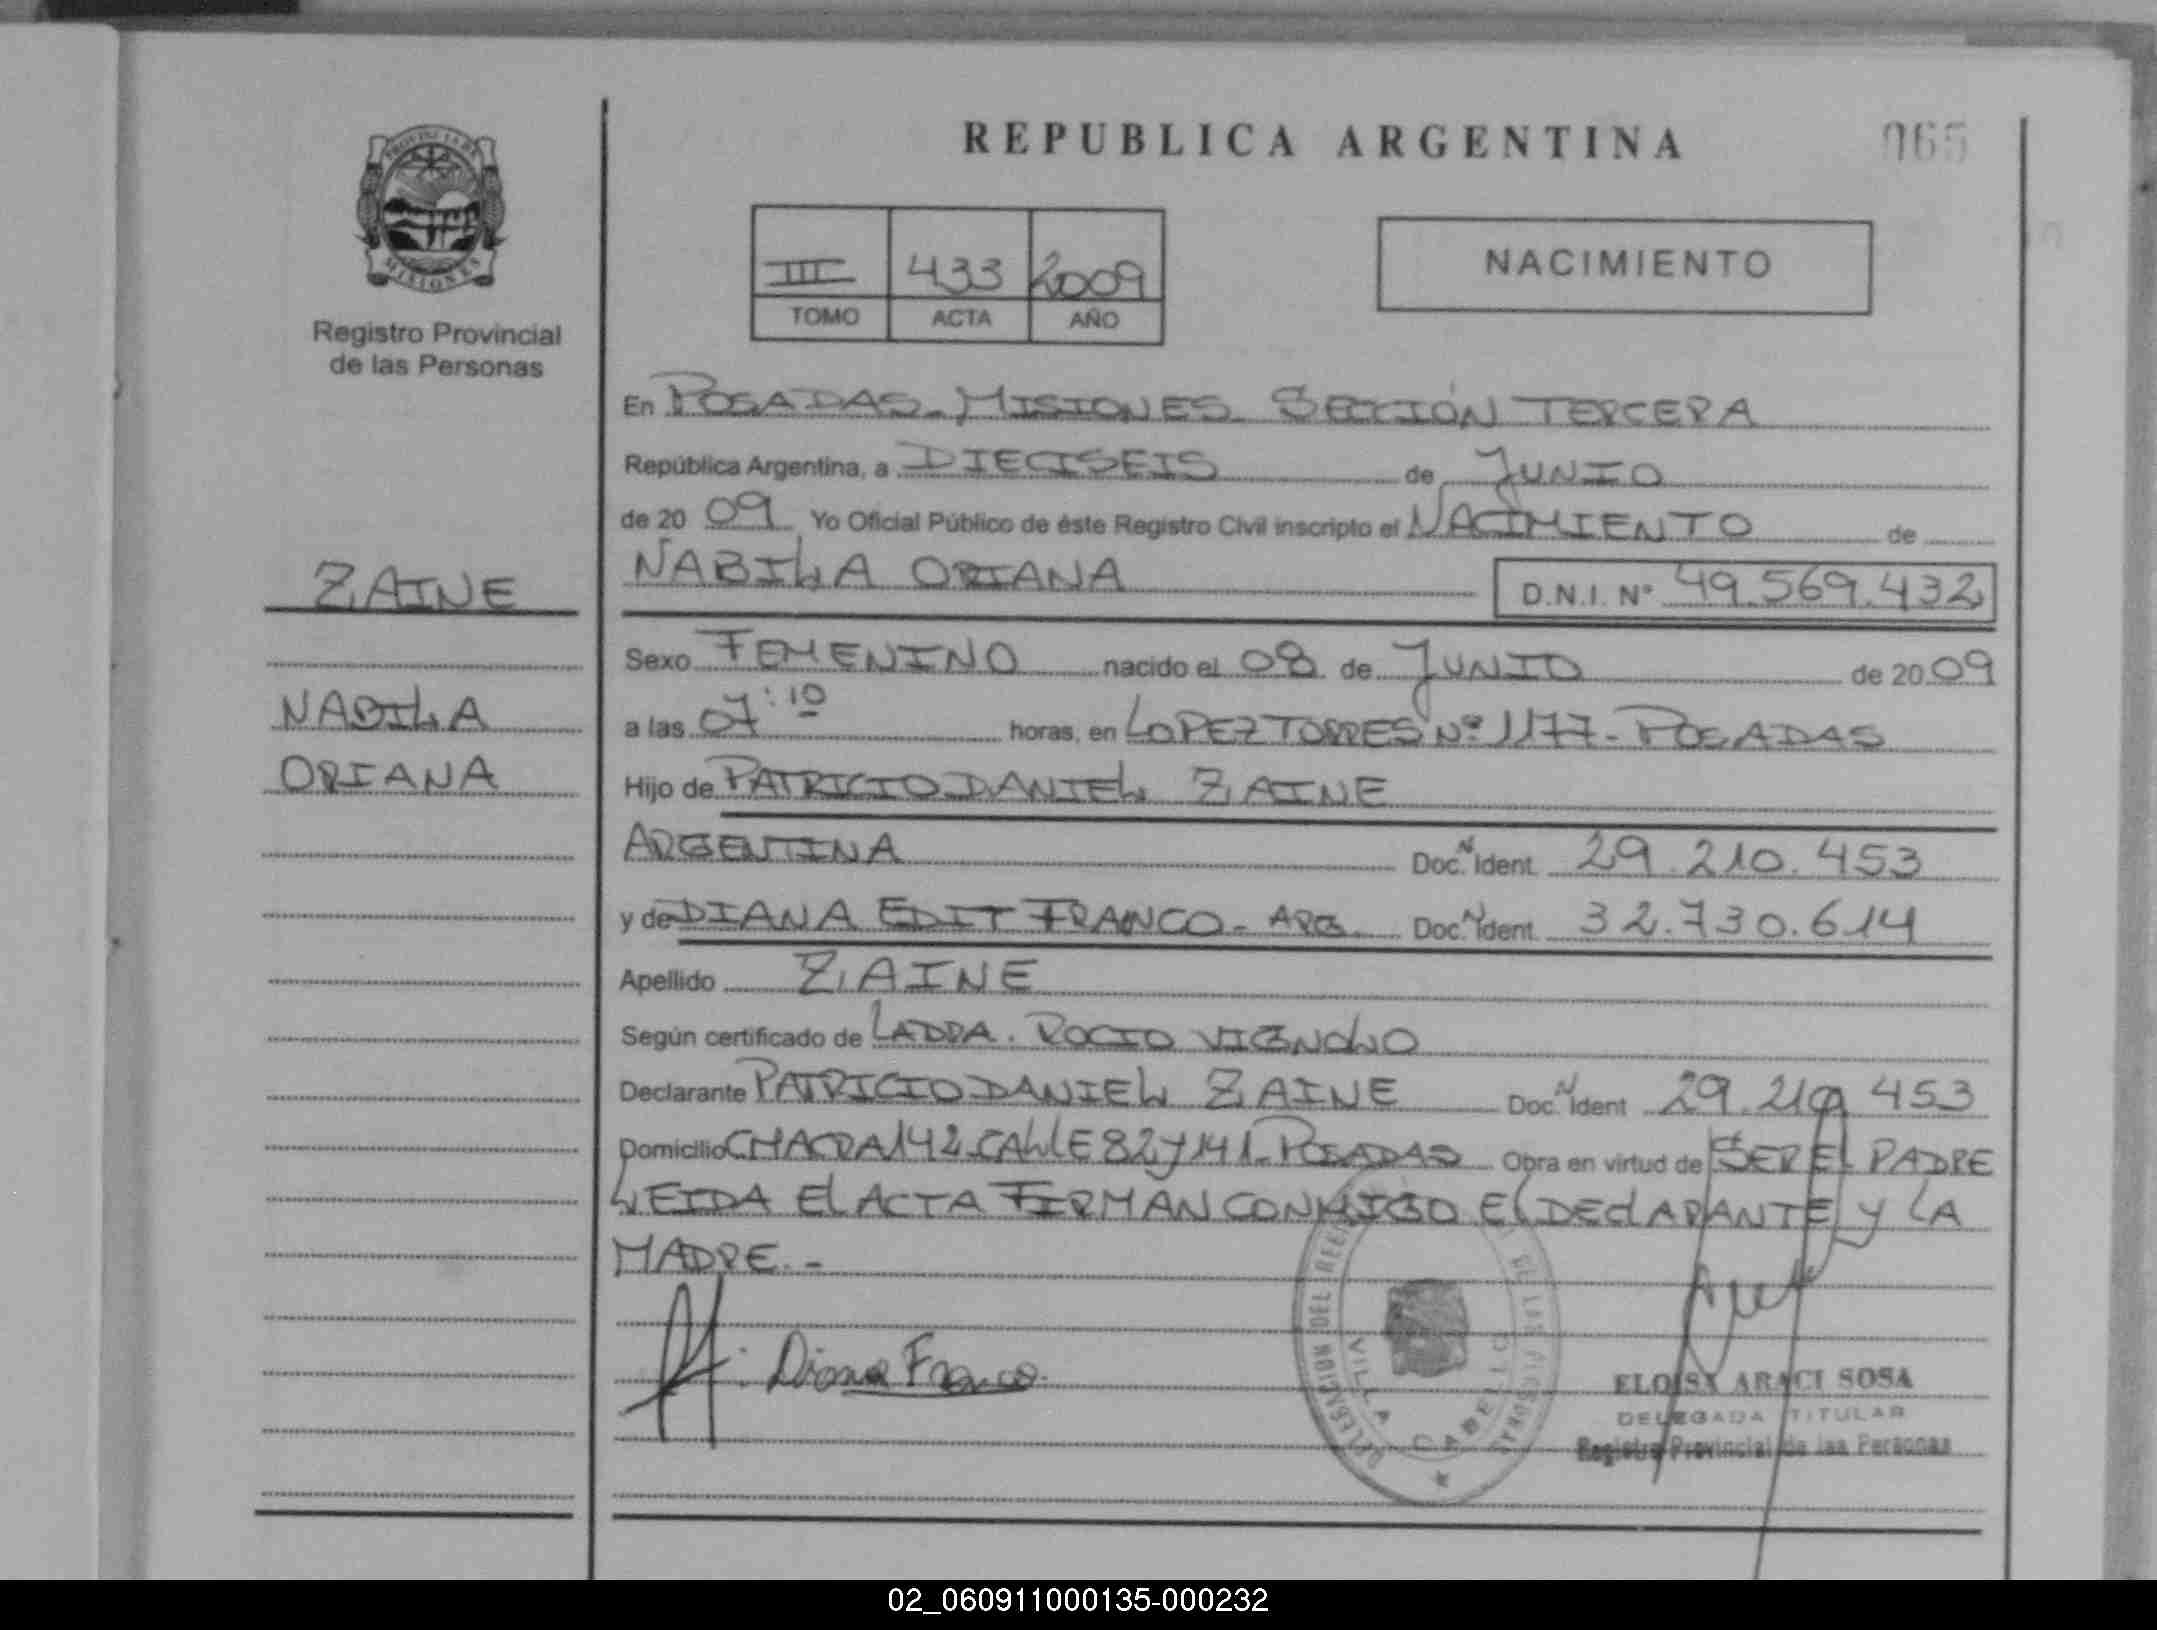 REPUBLICA ARGENTINA
065
PROVINCIA DE
MISIONES
Registro Provincial
de las Personas
III 433 2009
TOMO ACTA AÑO
NACIMIENTO
En POSADAS - MISIONES SECCIÓN TERCERA
República Argentina, a DIECISEIS de JUNIO
de 20 09 Yo Oficial Público de éste Registro Civil inscripto el NACIMIENTO de
ZAINE
NABILA ORIANA D.N.I. Nº 49.569.432
Sexo FEMENINO nacido el 08 de JUNIO de 20 09
NABILA
a las 07:10 horas, en LOPEZ TORRES Nº 1177 - POSADAS
ORIANA
Hijo de PATRICIO DANIEL ZAINE
ARGENTINA Doc. N Ident. 29.210.453
y de DIANA EDIT FRANCO - ARG. Doc. N Ident. 32.730.614
Apellido ZAINE
Según certificado de LA DRA. ROCIO
Declarante PATRICIO DANIEL ZAINE Doc. N Ident 29.210.453
Domicilio CHACRA 142 CALLE 82 y 141 - POSADAS Obra en virtud de SER EL PADRE
LEIDA El ACTA FIRMAN CONMIGO El DEClARANTE y LA
MADRE. -
Diana Franco.
DELEGACION DEL REG DE LAS PERSONAS
VILLA CABELLO
ELOISA ARACI SOSA
DELEGADA TITULAR
Registro Provincial de las Personas
02_060911000135-000232